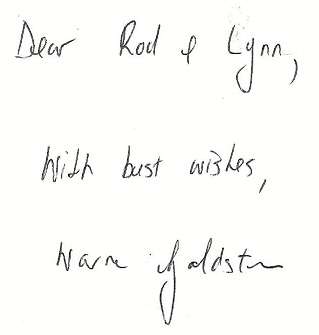 Dear Rod & Lynn,
With best wishes,
Warren Goldstein